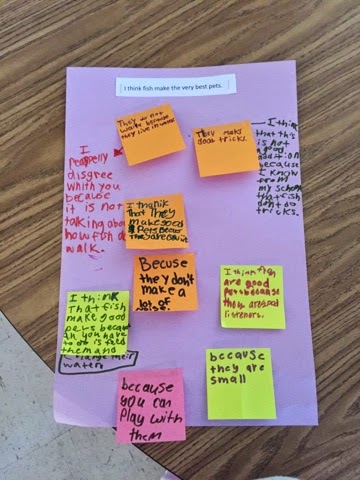 I think fish make the very best pets.
They do not
walk because
they live in water
They make
good tricks.
I
disgree
whith you
because
it is not
talking about
how fish do
walk.
I think
that this
is not
a good
addition
because
I know
from
my school
that fish
don't do
tricks.
I thank
That They
make good
Pets Becus
They are
Becuse
they don't
make a
lot of
noise.
I think fish
are good
pets because
they are good
listeners.
I think
That fish
make good
pets because
all you have
to do is feed
them and
change their
water
because
they are
small
because
you can
Play with
them